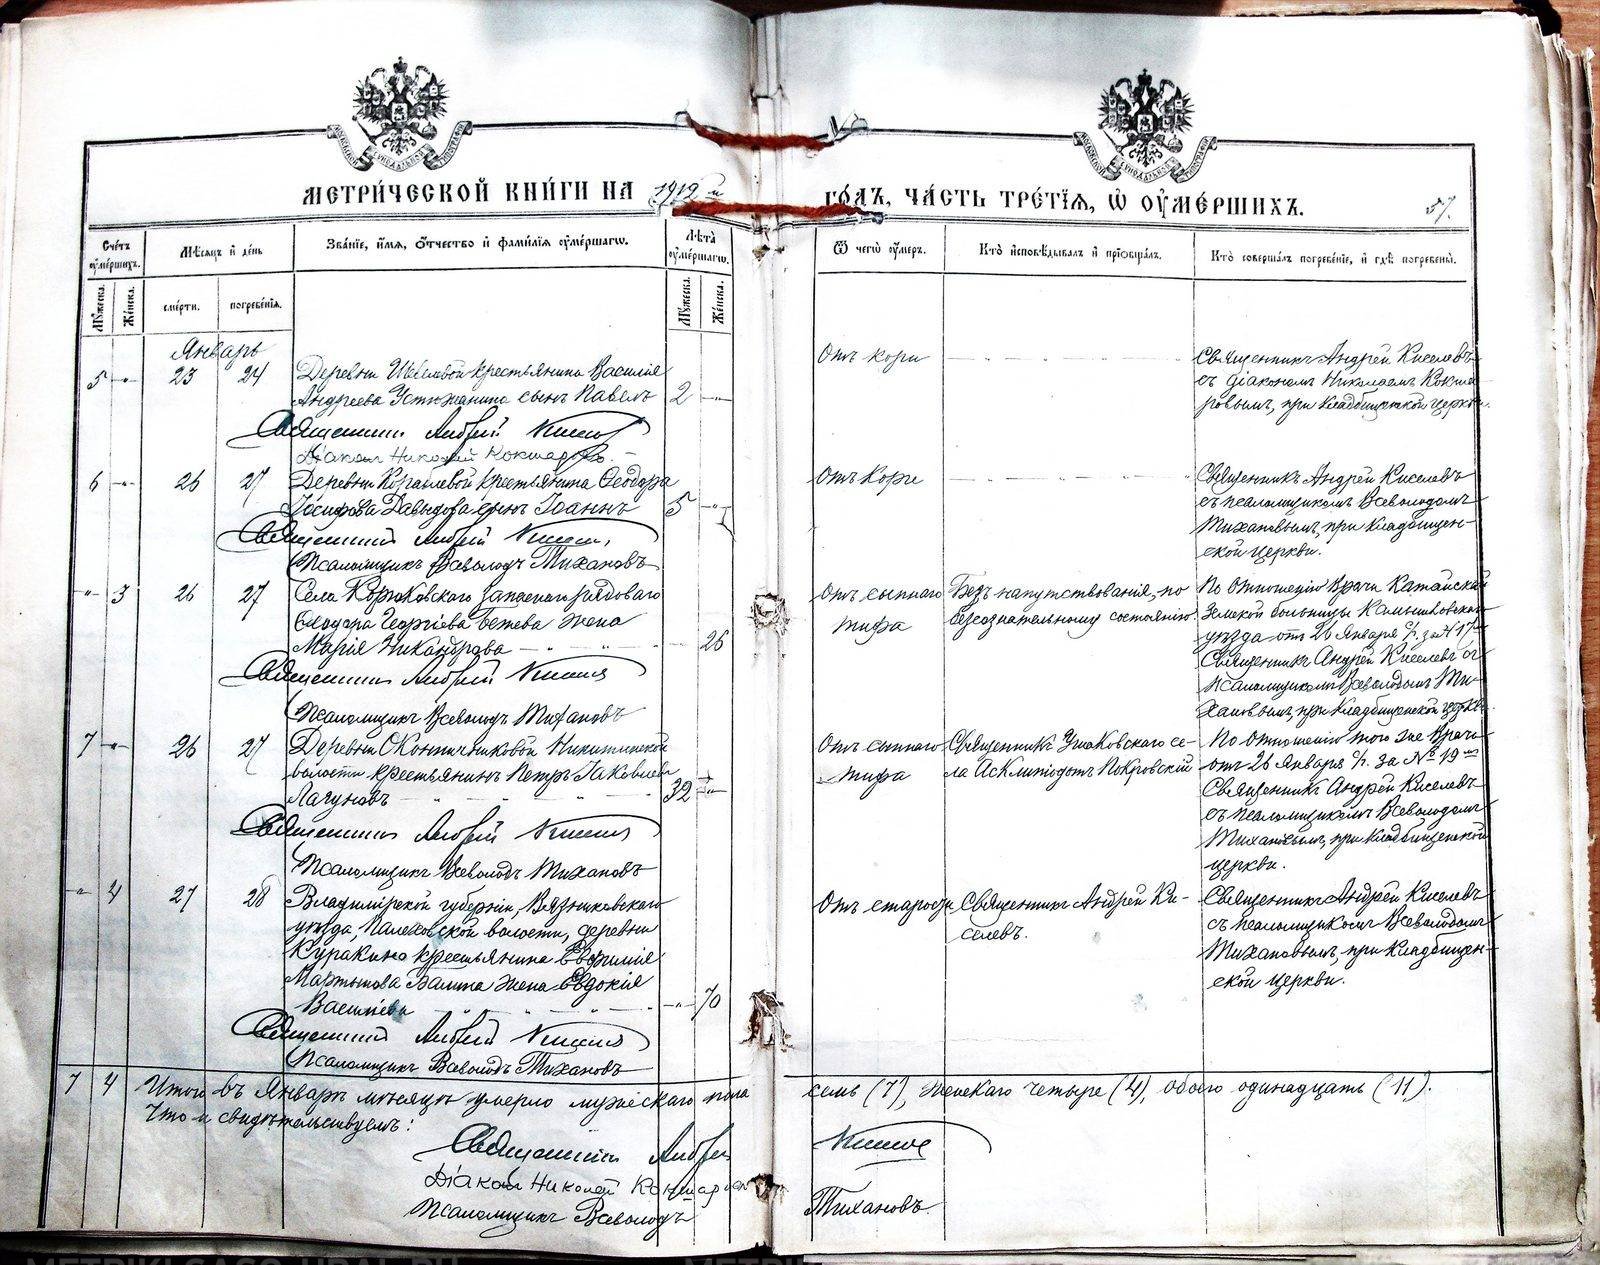 МЕТРИ́ЧЕСКОЙ КНИ́ГИ НА 1919 й ГО́ДЪ, ЧА́СТЬ ТРЕ́ТІѦ, Ѡ ОУМЕ́РШИХЪ.
57.
Сче́тъ оуме́ршихъ.
Мѣ́сѧцъ и де́нь
Зва́нїе, и́мѧ, ѻ҆́тчество и фами́лїѧ оуме́ршагѡ.
Лѣ́та оуме́ршагѡ.
Ѿ чегѡ̀ оу́меръ.
Кто̀ и҆сповѣ́дывалъ и҆ прїѡбща́лъ.
Кто̀ соверша́лъ погребе́нїе, и҆ гдѣ̀ погребены̀.
Му́жеска.
Же́нска.
сме́рти.
погребе́нїѧ.
Му́жеска.
Же́нска.
Январь
5 - " - 23 24 Деревни крестьянина Василія
Андреева Устюжанина сынъ Павелъ 2 - " -
Священникъ Андрей Киселевъ
Діаконъ Николай Кокшаровъ. -
Отъ кори
Священникъ Андрей Киселевъ
съ діакономъ Николаемъ Кокша-
ровымъ, при кладбищенской церкви.
6 - " - 26 27 Деревни крестьянина Ѳеодора
Іосифова Давыдова сынъ Іоаннъ 5 - " -
Священникъ Андрей Киселевъ
Псаломщикъ Всеволодъ Тихановъ
Отъ кори
Священникъ Андрей Киселевъ
съ псаломщикомъ Всеволодомъ
Тихановымъ, при кладбищен-
ской церкви.
- " - 3 26 27 Села запаснаго рядоваго
Ѳеодора Георгіева жена
Марія Никандрова - " - " - 26
Священникъ Андрей Киселевъ
Псаломщикъ Всеволодъ Тихановъ
Отъ сыпнаго
тифа
Безъ напутствованія, по
безсознательному состоянію.
По отношенію врача Катайской
Земской больницы Камышловскаго
уѣзда отъ 26 Января с/г. за № 17
Священникъ Андрей Киселевъ съ
псаломщикомъ Всеволодомъ Ти-
хановымъ, при кладбищенской церкви.
7 - " - 26 27 Деревни Никитинской
волости крестьянинъ Петръ Іаковлевъ
Лагуновъ 32 - " -
Священникъ Андрей Киселевъ
Псаломщикъ Всеволодъ Тихановъ
Отъ сыпнаго
тифа
Священникъ Ушаковскаго се-
ла Асклипіодотъ Покровскій
По отношенію того же врача
отъ 26 Января с/г. за № 19
Священникъ Андрей Киселевъ
съ псаломщикомъ Всеволодомъ
Тихановымъ, при кладбищенской
церкви.
- " - 4 27 28 Владимірской губерніи, Вязниковскаго
уѣзда, Палеховской волости, деревни
Куракино крестьянина Евѳимія
Мартынова жена Евдокія
Васильева - " - 70
Священникъ Андрей Киселевъ
Псаломщикъ Всеволодъ Тихановъ
Отъ старости
Священникъ Андрей Ки-
селевъ.
Священникъ Андрей Киселевъ
съ псаломщикомъ Всеволодомъ
Тихановымъ, при кладбищен-
ской церкви.
7 4 Итого въ Январѣ мѣсяцѣ умерло мужескаго пола семь (7), женскаго четыре (4), обоего одинадцать (11).
Что и свидѣтельствуемъ:
Священникъ Андрей Киселевъ
Діаконъ Николай Кокшаровъ
Псаломщикъ Всеволодъ Тихановъ.